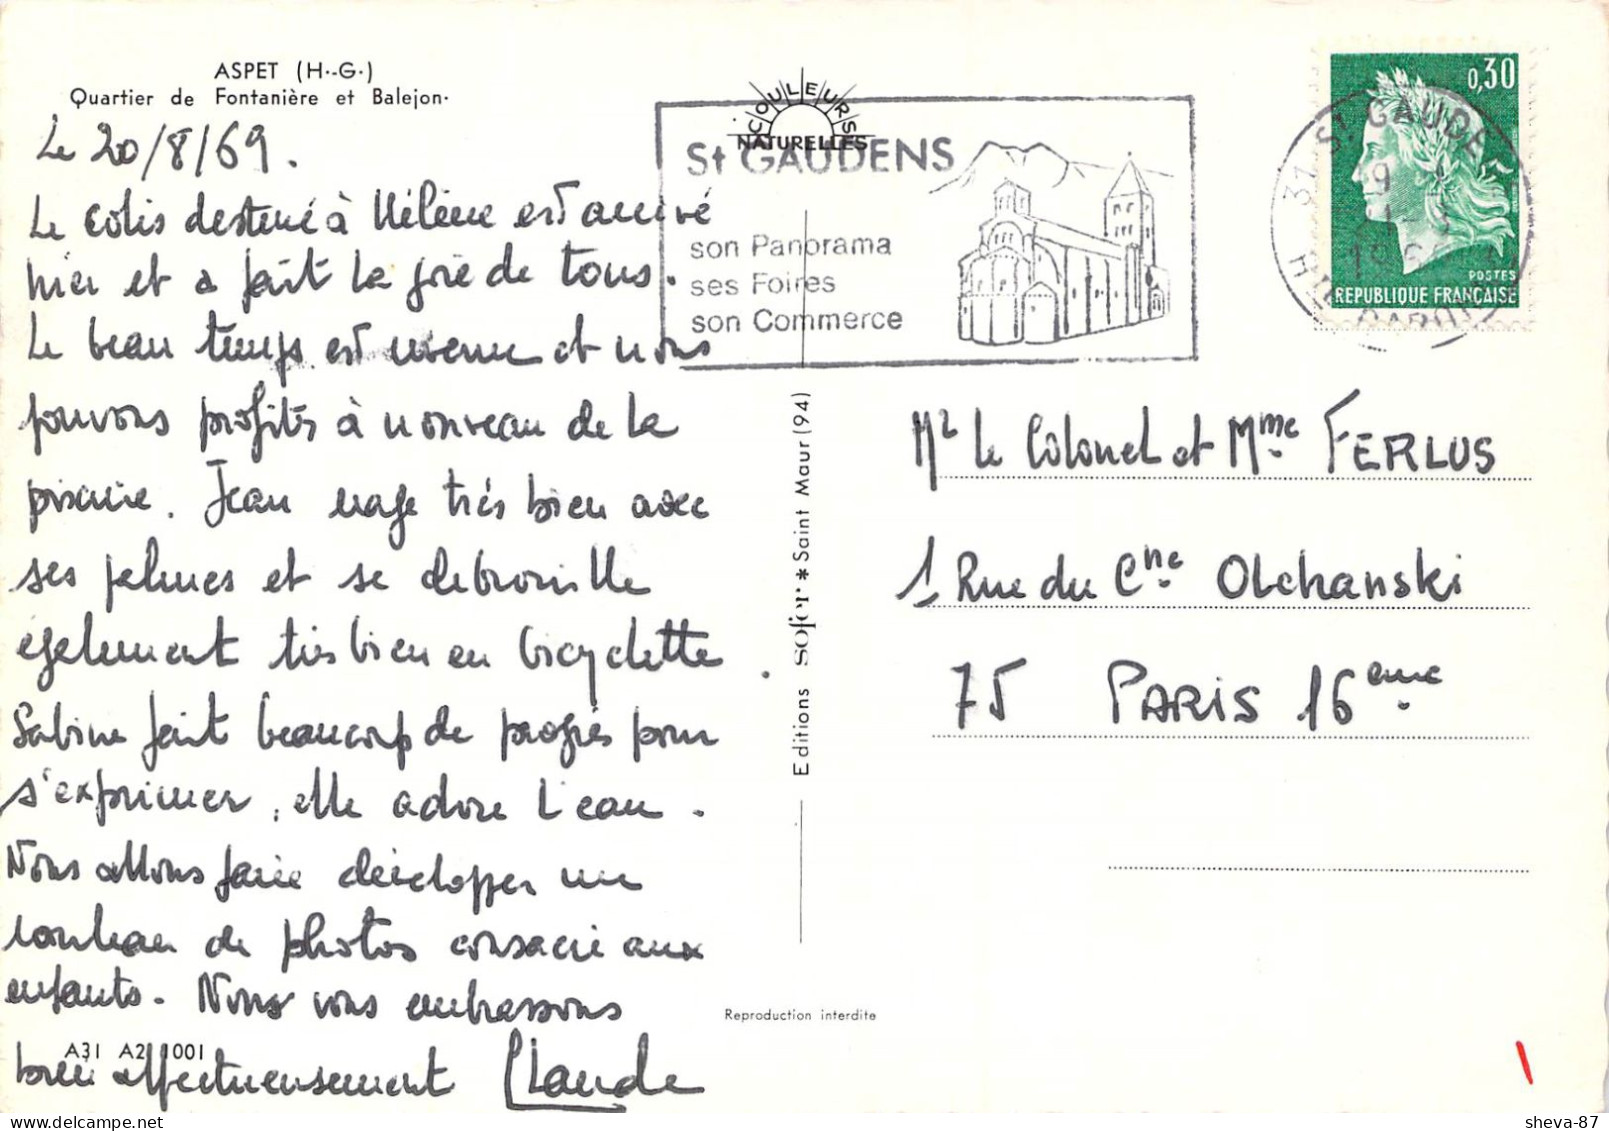 ASPET (H.-G.)
Quartier de Fontanière et Balejon.
Le 20/8/69.
Le colis destiné à Hélène est arrivé
hier et a fait la joie de tous.
Le beau temps est revenu et nous
pouvons profiter à nouveau de la
piscine. Jean nage très bien avec
ses palmes et se débrouille
également très bien en bicyclette.
Sabine fait beaucoup de progrès pour
s'exprimer, elle adore l'eau.
Nous allons faire développer un
rouleau de photos consacré aux
enfants. Nous vous embrassons
bien affectueusement Claude
A31 A2 1001
COULEURS
NATURELLES
St GAUDENS
son Panorama
ses Foires
son Commerce
Editions sofer * Saint Maur (94)
Reproduction interdite
31 St GAUDENS
0,30
POSTES
REPUBLIQUE FRANÇAISE
Mr le Colonel et Mme FERLUS
1 Rue du Cne Olchanski
75 PARIS 16eme
sheva-87